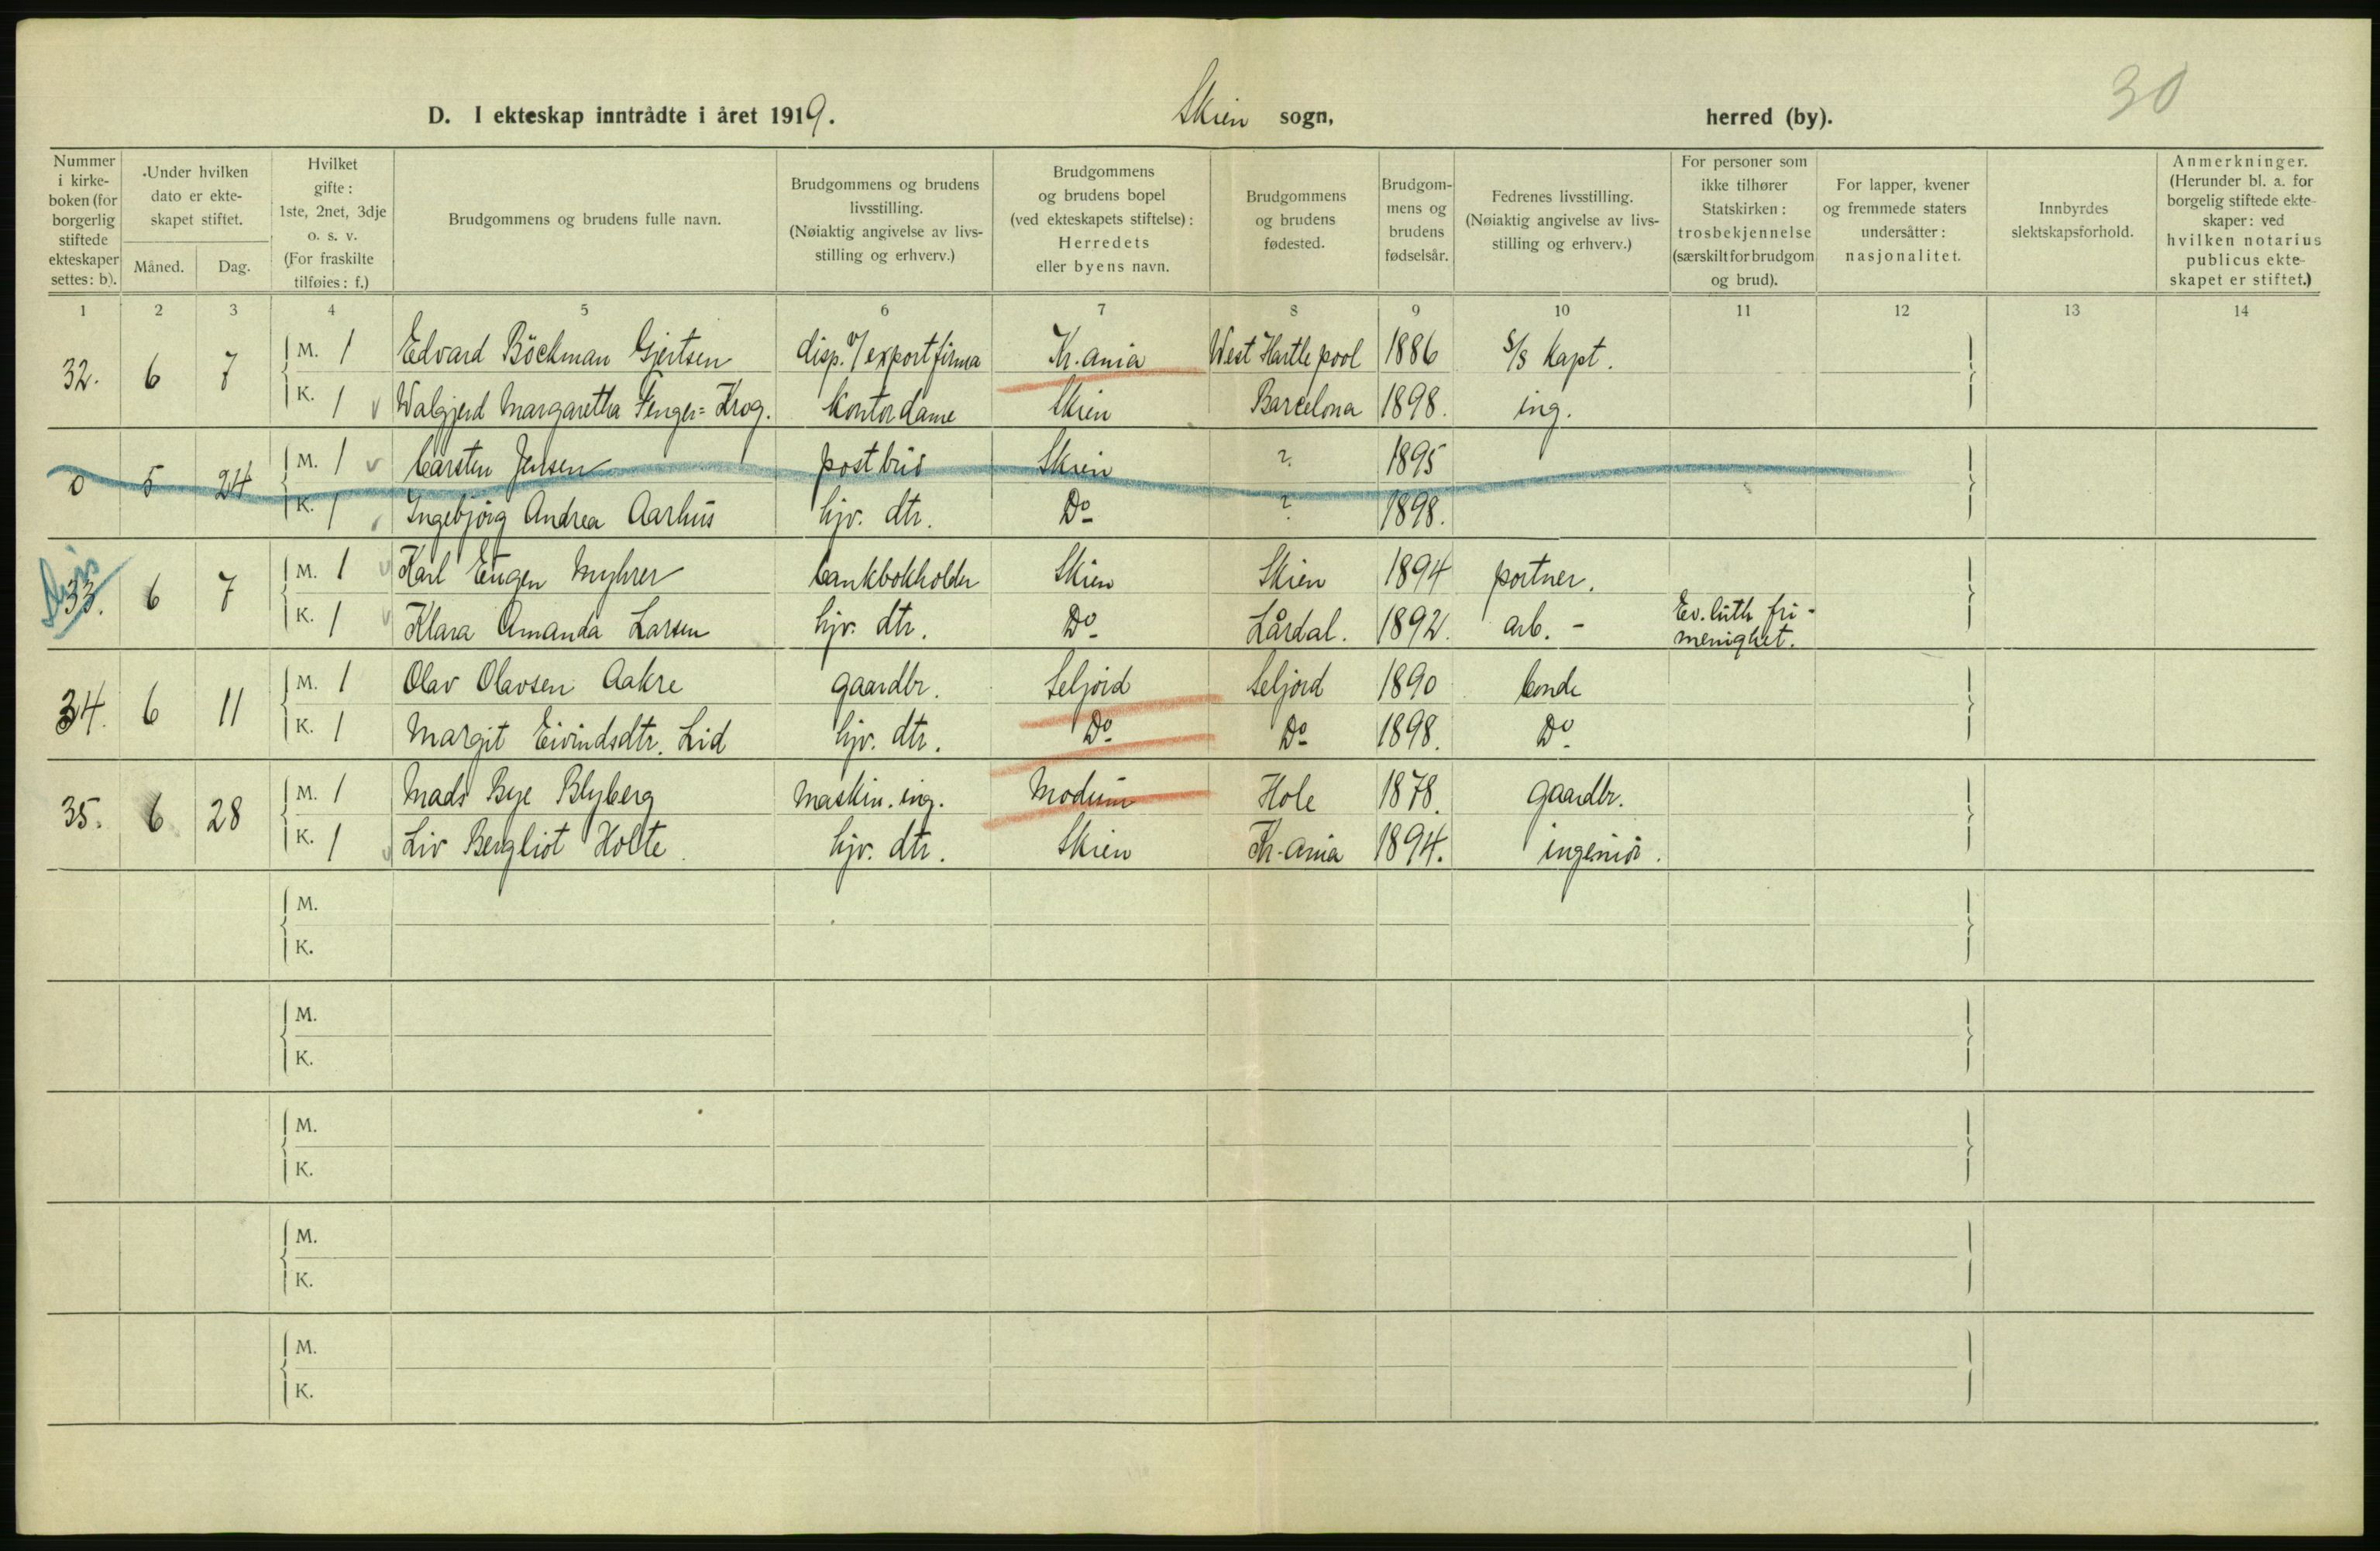 30
D. I ekteskap inntrådte i året 1919. Skien sogn, herred (by).
Nummer i kirke-boken (for borgerlig stiftede ekteskaper settes: b).
Under hvilken dato er ekte-skapet stiftet.
Måned. Dag.
Hvilket gifte: 1ste, 2net, 3dje o. s. v. (For fraskilte tilføies: f.)
Brudgommens og brudens fulle navn.
Brudgommens og brudens livsstilling. (Nøiaktig angivelse av livs-stilling og erhverv.)
Brudgommens og brudens bopel (ved ekteskapets stiftelse): Herredets eller byens navn.
Brudgommens og brudens fødested.
Brudgom-mens og brudens fødselsår.
Fedrenes livsstilling. (Nøiaktig angivelse av livs-stilling og erhverv.)
For personer som ikke tilhører Statskirken: trosbekjennelse (særskilt for brudgom og brud).
For lapper, kvener og fremmede staters undersåtter: nasjonalitet.
Innbyrdes slektskapsforhold.
Anmerkninger. (Herunder bl. a. for borgelig stiftede ekte-skaper: ved hvilken notarius publicus ekte-skapet er stiftet.)
1 2 3 4 5 6 7 8 9 10 11 12 13 14
32. 6 7 M. 1 Edvard Böckman Gjertsen disp. v/ exportfirma Kr.ania West Hartlepool 1886 S/S Kapt.
K. 1 Walgjerd Margaretha Fenger=Krog. Kontordame Skien Barcelona 1898. ing.
0 5 24 M. 1 Carsten Jensen postbud Skien ? 1895
K. 1 Ingebjörg Andrea Aarhus hjv. dtr. Do ? 1898.
33. 6 7 M. 1 Karl Eugen Myhrer bankbokholder Skien Skien 1894 portner.
K. 1 Klara Amanda Larsen hjv. dtr. Do Lårdal. 1892. arb. - Ev. luth fri-
menighet.
34. 6 11 M. 1 Olav Olavsen Aakre gaardbr. Seljord Seljord 1890 bonde
K. 1 Margit Eivindsdtr. Lid hjv. dtr. Do Do 1898. Do
35. 6 28 M. 1 Mads Bye Blyberg maskin. ing. Modum Hole 1878. gaardbr.
K. 1 Liv Bergliot Holte hjv. dtr. Skien Kr-ania 1894. ingeniör.
M.
K.
M.
K.
M.
K.
M.
K.
M.
K.